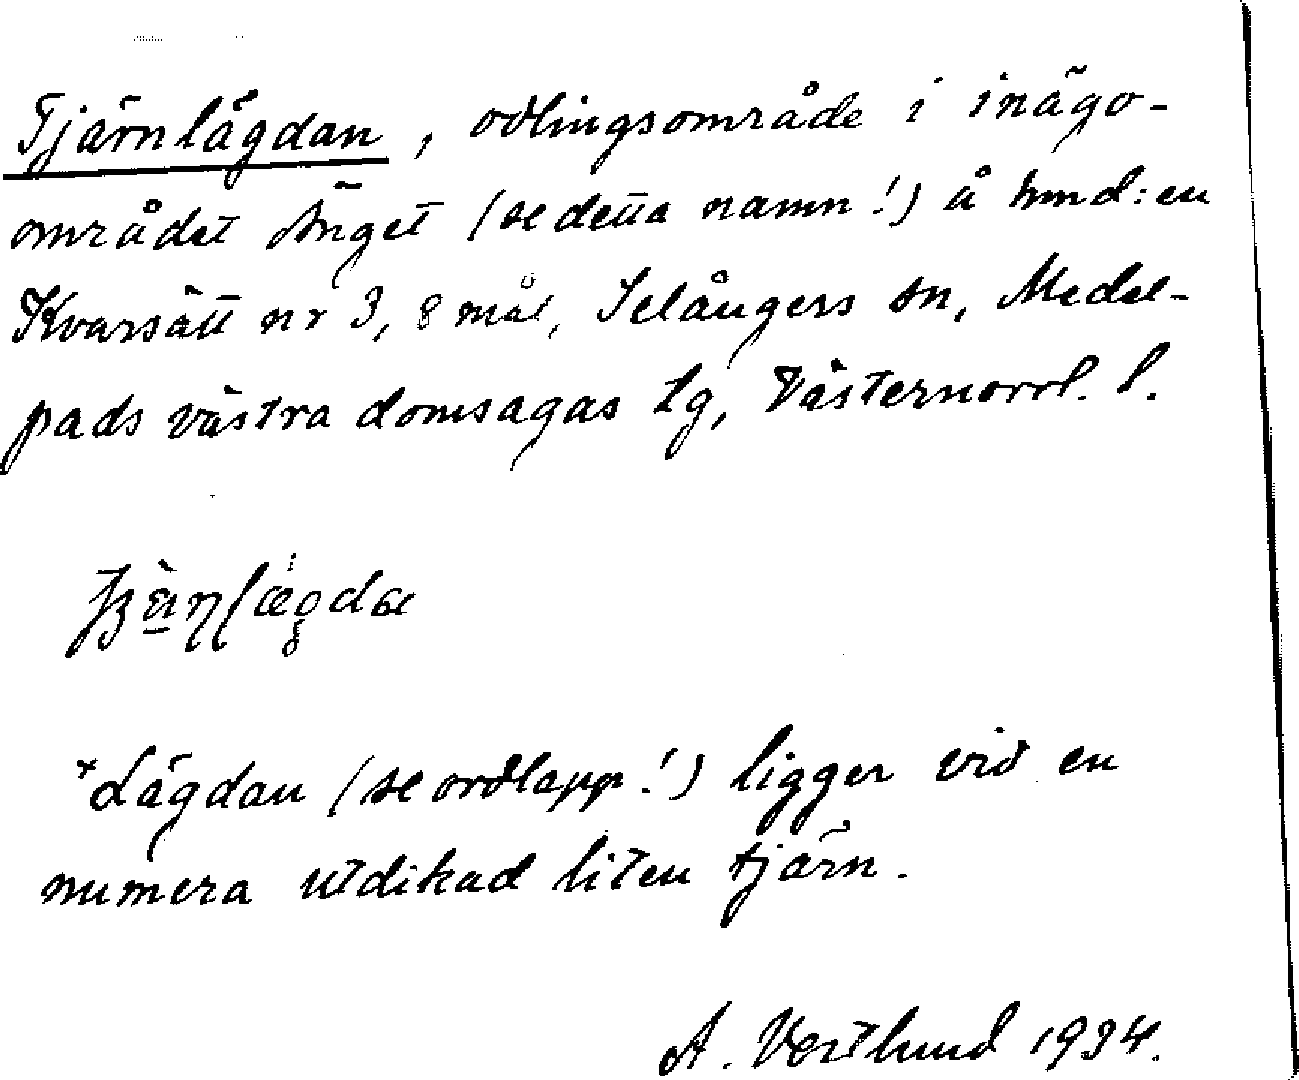 Tjärnlägdan, odlingsområde i inägo-
området Änget (se detta namn!) å hmd:en
Kvarsätt nr 3, 8 mål, Selångers sn, Medel-
pads västra domsagas tg, Västernorrl. l.
*Lägdan (se ordlapp!) ligger vid en
numera utdikad liten tjärn.
A. Vestlund 1934.